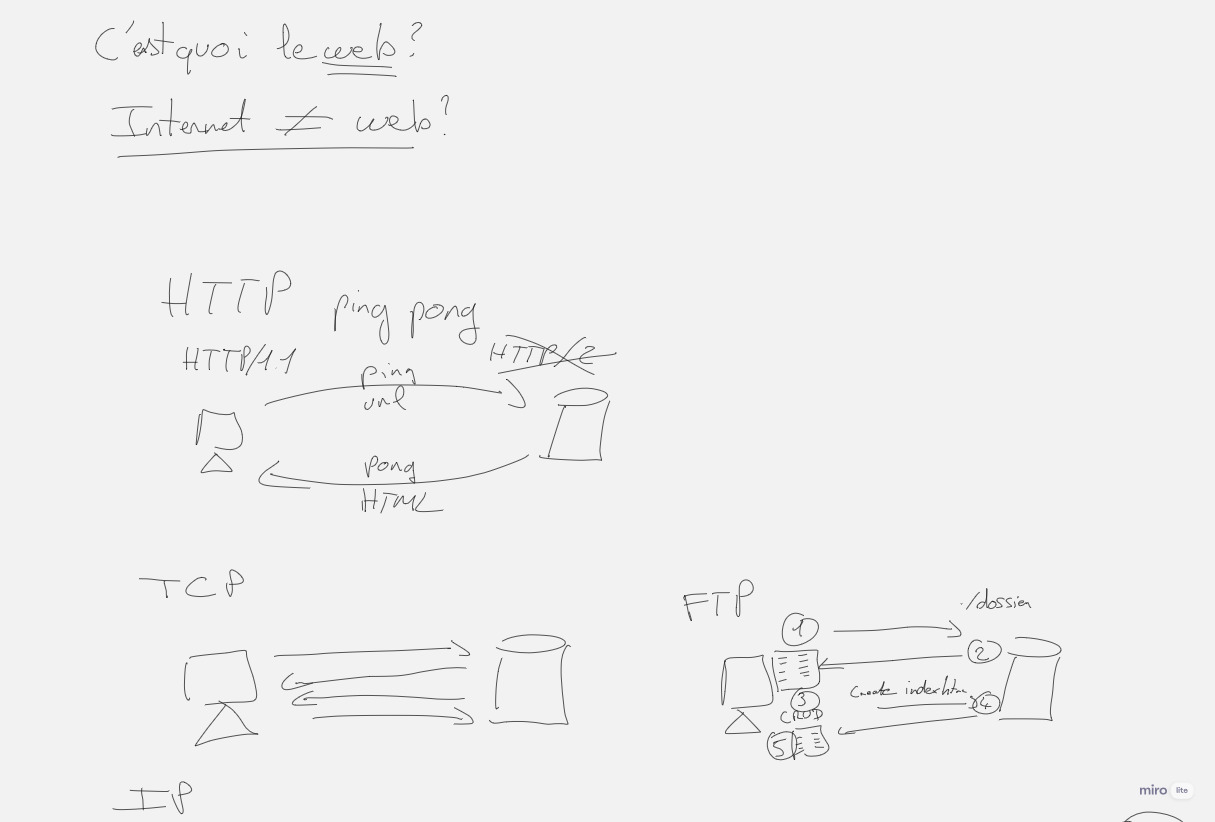 C'est quoi le web?
Internet ≠ web?
HTTP ping pong
HTTP/1.1
HTTP/2
ping
url
pong
HTML
TCP
FTP
./dossier
1
2
3
create index.htm
4
CRUD
5
IP
miro lite